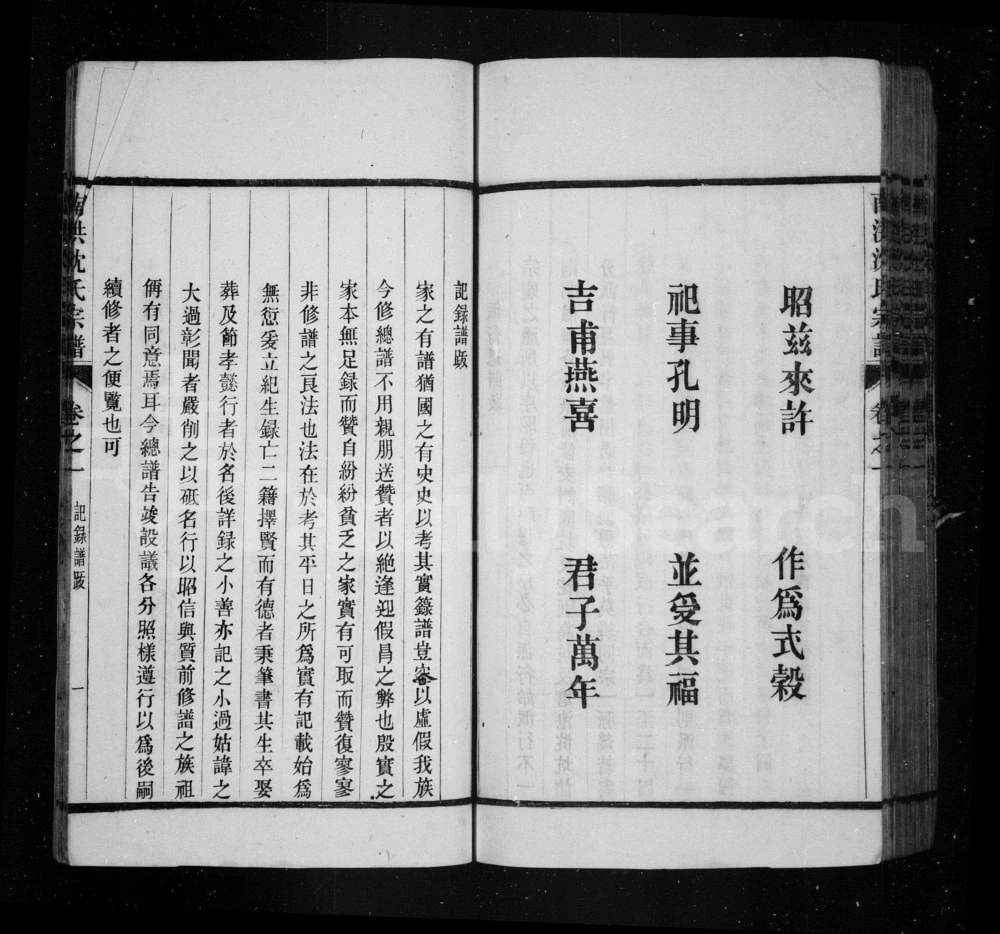 昭茲來許 作爲式穀
祀事孔明 並受其福
吉甫燕喜 君子萬年
記録譜跋
家之有譜猶國之有史史以考其實籙譜豈容以虛假我族
今修總譜不用親朋送贊者以絶逢迎假昌之弊也殷實之
家本無足録而贊自紛紛貧乏之家實有可取而贊復寥寥
非修譜之良法也法在於考其平日之所爲實有記載始爲
無愆爰立紀生録亡二籍擇賢而有德者秉筆書其生卒娶
葬及節孝懿行者於名後詳録之小善亦記之小過姑諱之
大過彰聞者嚴削之以砥名行以昭信與質前修譜之族祖
傳有同意焉耳今總譜告竣設議各分照樣遵行以爲後嗣
續修者之便覽也可
南洪沈氏宗譜 卷之一 記録譜跋 一